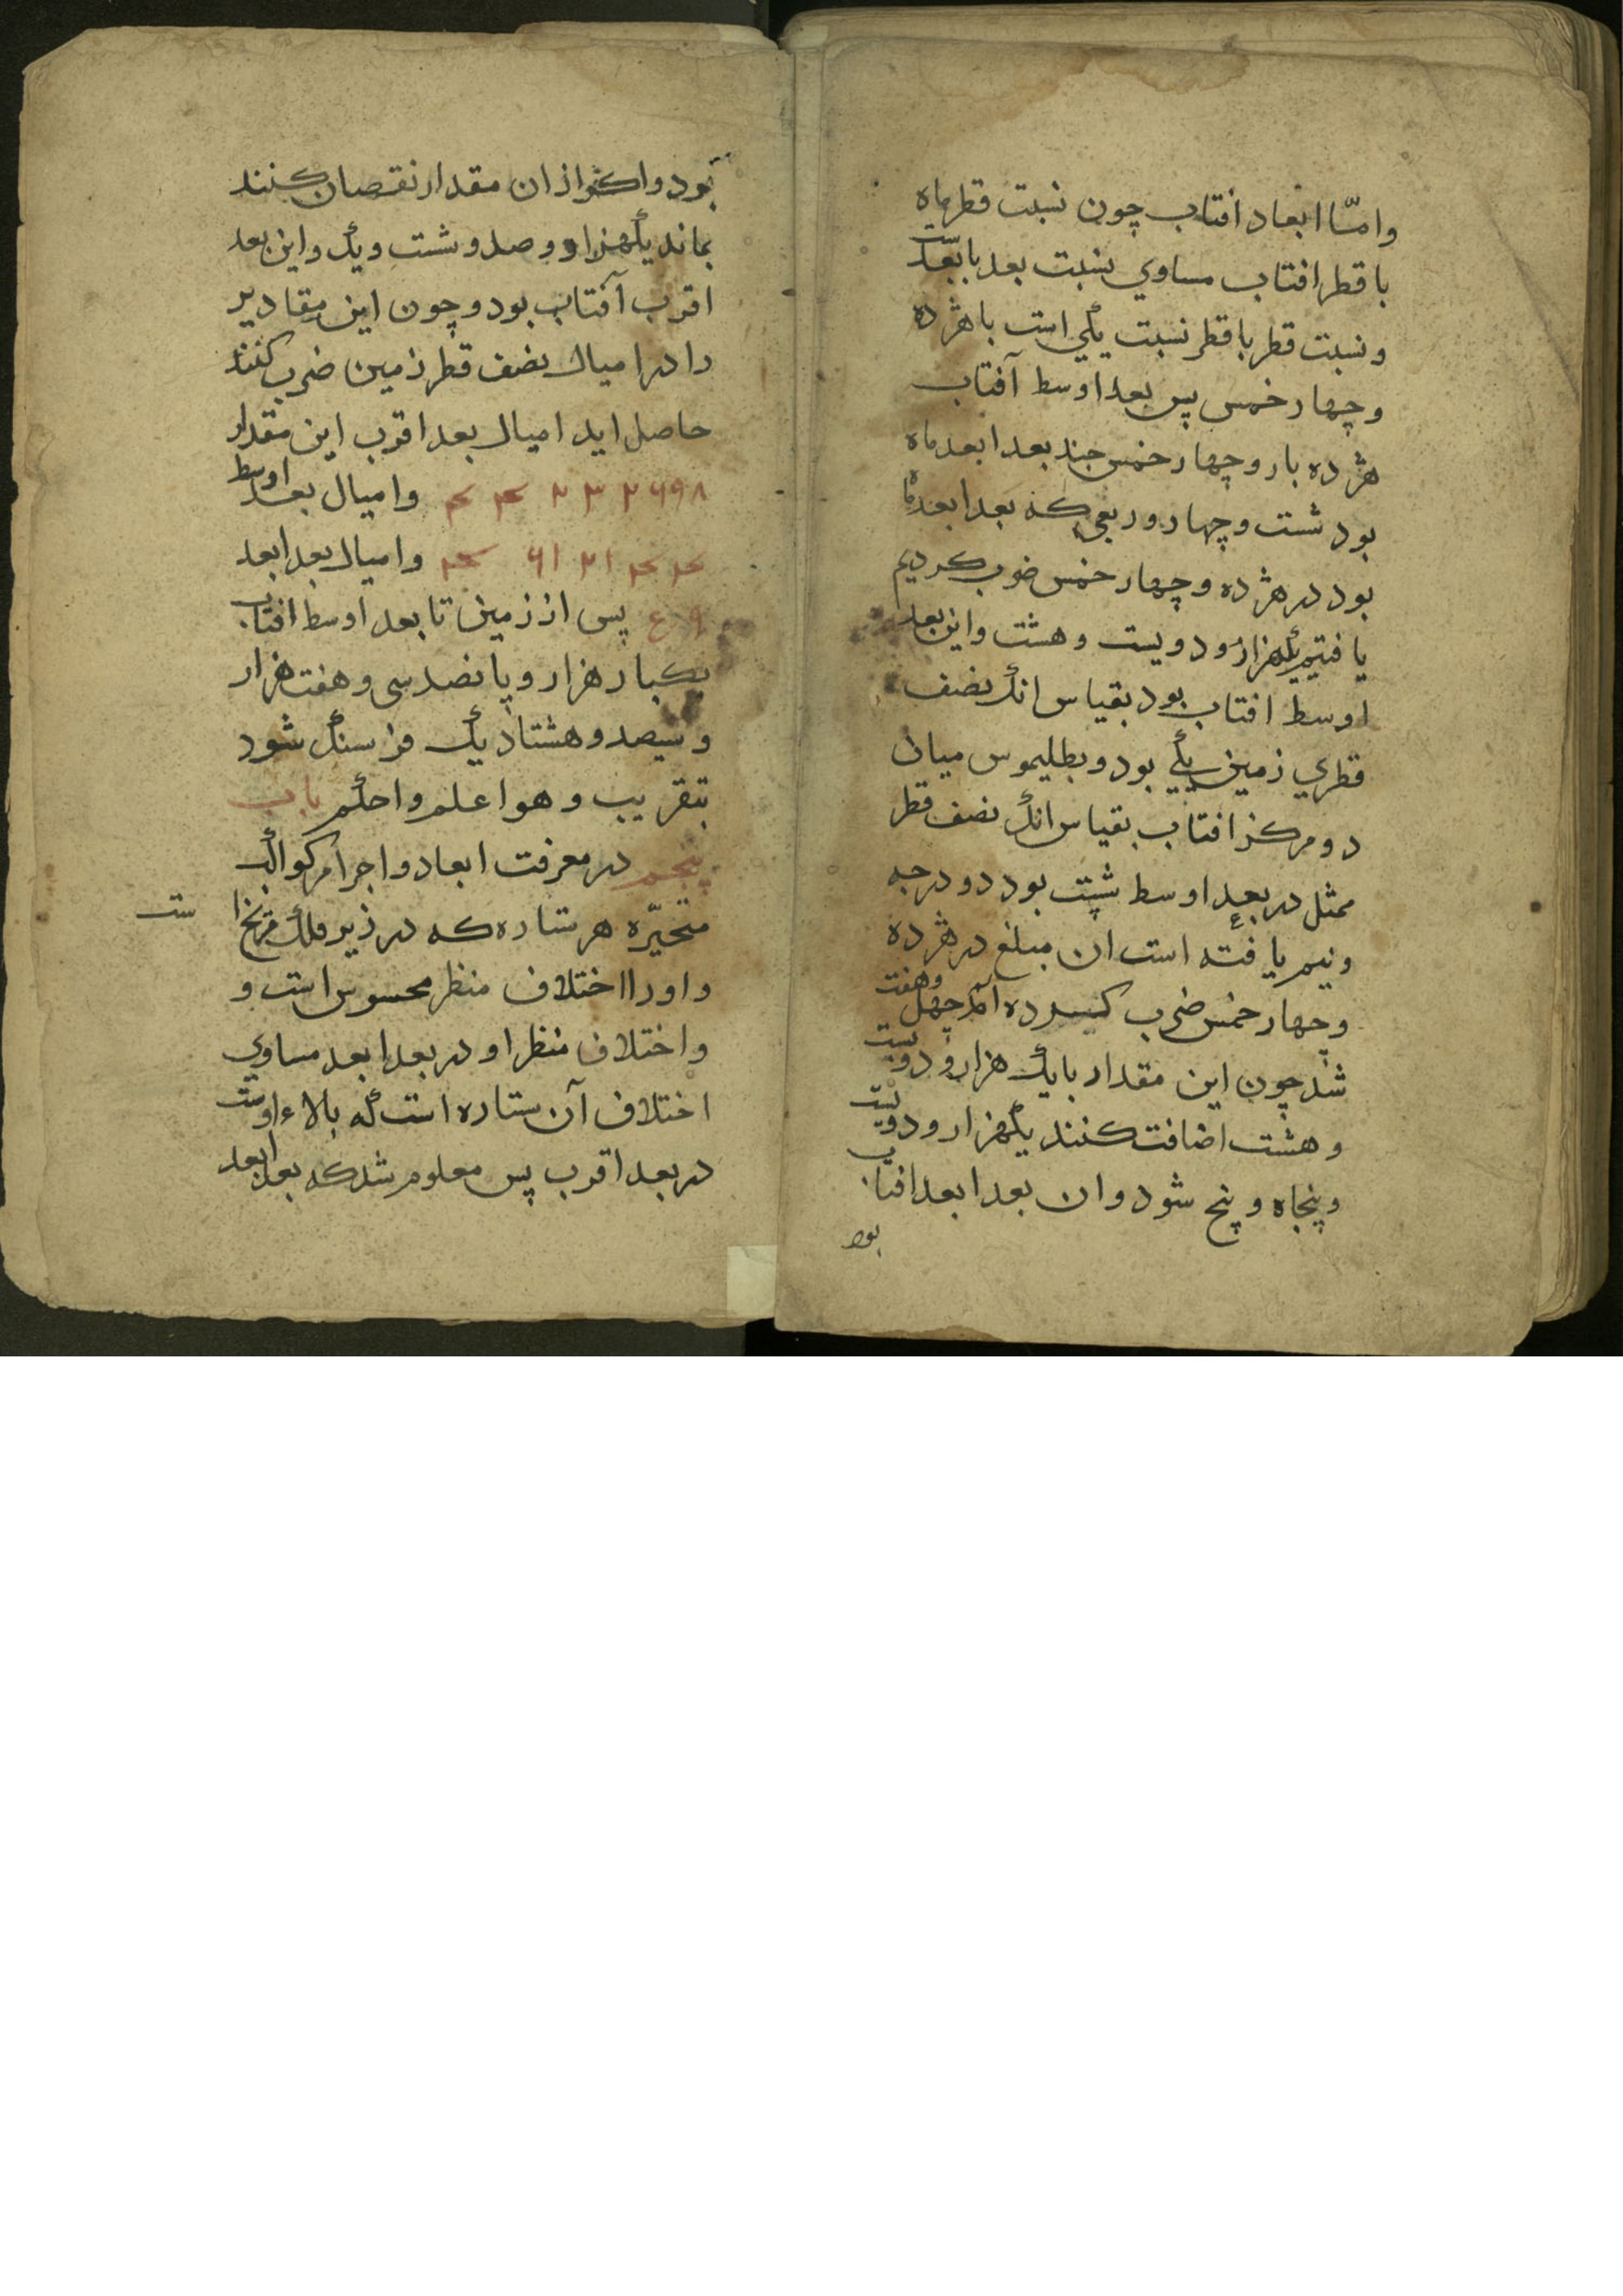 وامّا ابعاد افتاب چون نسبت قطر ماه
با قطر افتاب مساوي نسبت بعد با بعد است
و نسبت قطر با قطر نسبت يكي است با هژده
و چهار خمس پس بعد اوسط آفتاب
هژده بار و چهار خمس چند بعد ابعد ماه
بود شست و چهار و ربعي كه بعد ابعد ماه
بود در هژده و چهار خمس ضرب كرديم
يافتيم يكهزار و دويست و هشت و اين بعد
اوسط افتاب بود بقياس انك نصف
قطري زمين يكي بود و بطليموس ميان
دو مركز افتاب بقياس انك نصف قطر
ممثل در بعد اوسط شست بود دو درجه
و نيم يافته است ان مبلغ در هژده
و چهار خمس ضرب كرده آمد چهل و هفت
شد چون اين مقدار با يك هزار و دويست
و هشت اضافت كنند يكهزار و دويست
و پنجاه و پنج شود و ان بعد ابعد افتاب
بود
بود و اكر از ان مقدار نقصان كنند
بماند يكهزار و صد و شست و يك و اين بعد
اقرب آفتاب بود و چون اين مقادير
را در اميال نصف قطر زمين ضرب كنند
حاصل ايد اميال بعد اقرب اين مقدار
۳۲۶۹۸ ۲ ۴ ۴ و اميال بعد اوسط
۴ ۴ ۲۱ ۶۱ ۴ و اميال بعد ابعد
۹ ع پس از زمين تا بعد اوسط افتاب
يكبار هزار و پانصد سى و هفت هزار
و سيصد و هشتاد يك فرسنك شود
بتقريب و هو اعلم و احكم باب
پنجم در معرفت ابعاد و اجرام كواكب
متحيّره هر ستاره كه در زير فلك مريخ است
و اورا اختلاف منظر محسوس است و
و اختلاف منظر او در بعد ابعد مساوي
اختلاف آن ستاره است كه بالاء اوست
در بعد اقرب پس معلوم شد كه بعد ابعد